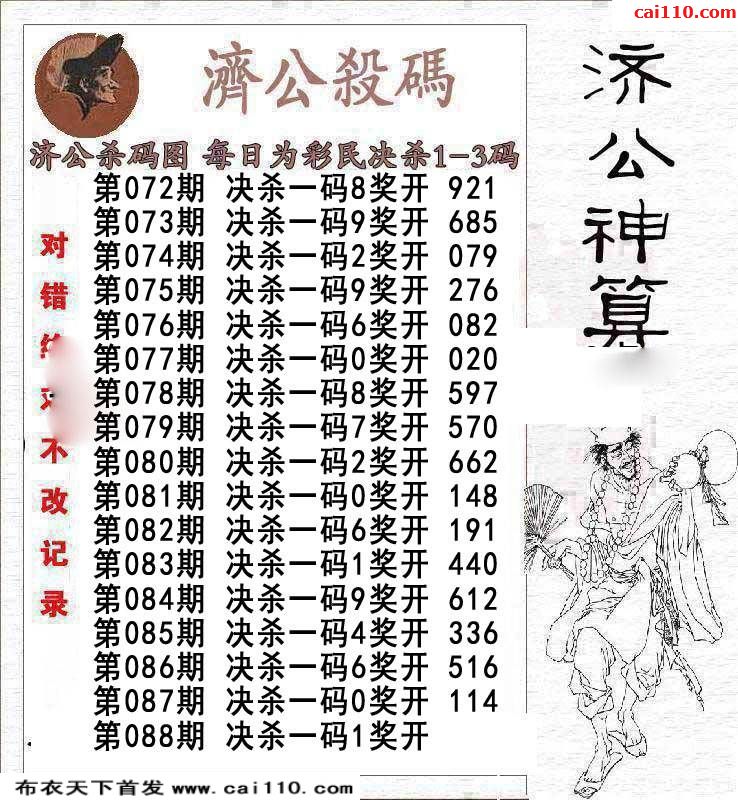 cai110.com
濟公殺碼
济公杀码图 每日为彩民决杀1-3码
第072期 决杀一码8奖开 921
第073期 决杀一码9奖开 685
第074期 决杀一码2奖开 079
第075期 决杀一码9奖开 276
第076期 决杀一码6奖开 082
第077期 决杀一码0奖开 020
第078期 决杀一码8奖开 597
第079期 决杀一码7奖开 570
第080期 决杀一码2奖开 662
第081期 决杀一码0奖开 148
第082期 决杀一码6奖开 191
第083期 决杀一码1奖开 440
第084期 决杀一码9奖开 612
第085期 决杀一码4奖开 336
第086期 决杀一码6奖开 516
第087期 决杀一码0奖开 114
第088期 决杀一码1奖开
对错
不改记录
济公神算
布衣天下首发 www.cai110.com